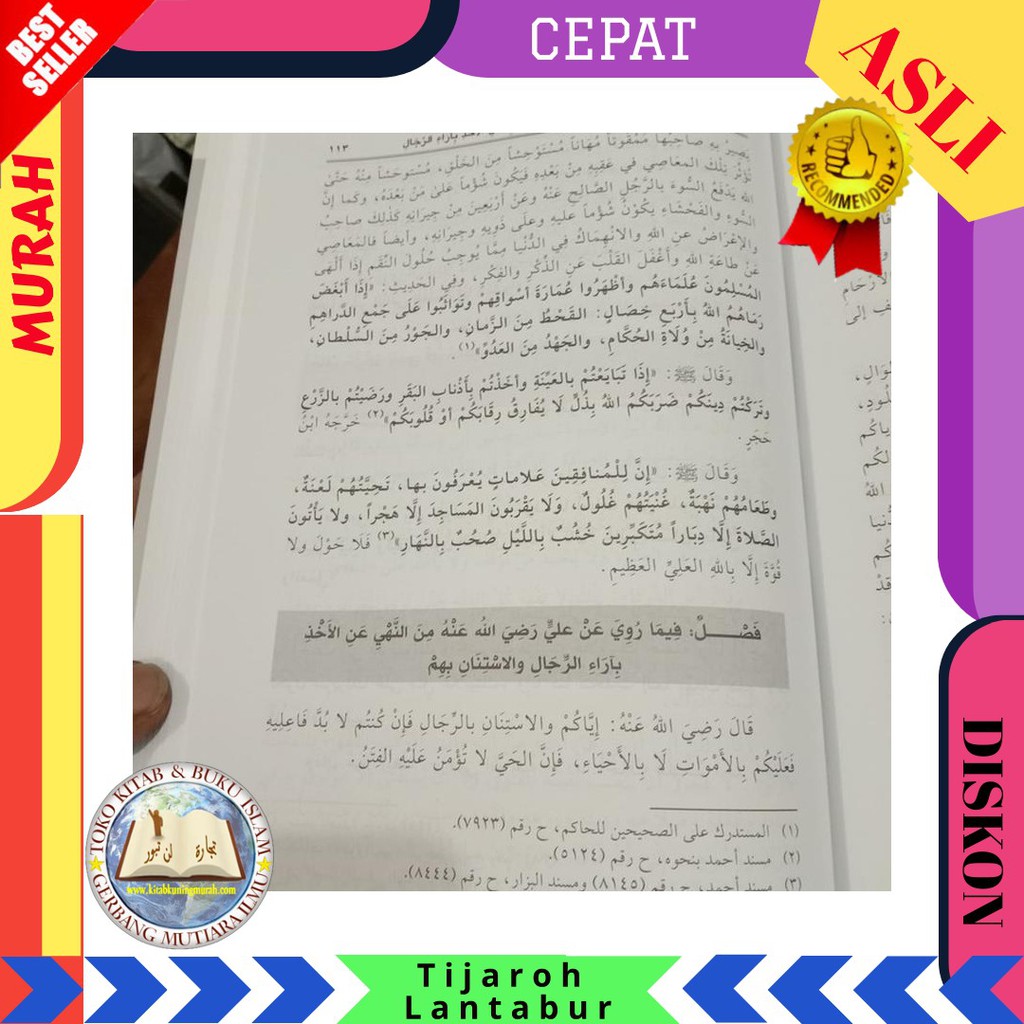 BEST
SELLER
CEPAT
ASLI
RECOMMENDED
MURAH
DISKON
بآراء الرجال ١١٣
يصير به صاحبها ممقوتاً مُهاناً مُسْتَوْحِشاً مِنَ الخَلْقِ، مُستوحَشاً مِنْهُ حَتَّى
تُؤَثِّرَ تِلْكَ المعَاصِي في عَقِبِهِ مِنْ بَعْدِهِ فَيَكُونَ شُؤْماً عَلَىٰ مَنْ بَعْدَهُ، وَكما إنَّ
اللهَ يَدْفَعُ السُّوءَ بالرَّجُلِ الصَّالِحِ عَنْهُ وَعَنْ أَرْبَعِينَ مِنْ جِيرانِهِ كَذَلِكَ صاحِبُ
السُّوءِ والفَحْشَاءِ يَكُونُ شُؤماً عليهِ وعلَى ذَوِيهِ وجِيرانِهِ، وأيضاً فالمَعَاصِي
والإعْرَاضُ عنِ اللهِ والانْهِمَاكُ فِي الدُّنْيا مِمَّا يُوجِبُ حُلُولَ النِّقَمِ إذَا أَلْهَى
عَنْ طاعَةِ اللهِ وأَغْفَلَ القَلْبَ عَنِ الذِّكْرِ والفِكْرِ، وفي الحَدِيثِ: «إِذَا أَبْغَضَ
المُسْلِمُونَ عُلَمَاءَهُم وَأَظْهَرُوا عُمَارَةَ أسْواقِهِمْ وَتَوَاثَبُوا عَلَى جَمْعِ الدَّراهِمِ
رَمَاهُمُ اللهُ بِأَرْبَعِ خِصَالٍ: القَحْطُ مِنَ الزَّمانِ، والجَوْرُ مِنَ السُّلْطانِ،
والخِيانَةُ مِنْ وُلَاةِ الحُكَّامِ، والجَهْدُ مِنَ العَدُوِّ»(١).
وَقَالَ ﷺ: «إِذَا تَبَايَعْتُمْ بالعَيِّنَةِ وأخَذْتُمْ بِأَذْنابِ البَقَرِ ورَضَيْتُمْ بالزَّرْعِ
وتَرَكْتُمْ دِينَكُمْ ضَرَبَكُمُ اللهُ بِذُلٍّ لَا يُفَارِقُ رِقَابَكُمْ أوْ قُلُوبَكُمْ»(٢) خَرَّجَهُ ابْنُ
حَجَرٍ.
وَقَالَ ﷺ: «إنَّ لِلْمُنافِقِينَ عَلاماتٍ يُعْرَفُونَ بها، تَحِيَّتُهُمْ لَعْنَةٌ،
وطَعَامُهُمْ نَهْبَةٌ، غُنْيَتُهُمْ غُلُولٌ، وَلَا يَقْرَبُونَ المَسَاجِدَ إلَّا هَجْراً، ولا يَأْتُونَ
الصَّلاةَ إلَّا دِبَاراً مُتَكَبِّرِينَ خُشُبٌ بِاللَّيْلِ صُحُبٌ بِالنَّهَارِ»(٣) فَلَا حَوْلَ ولا
قُوَّةَ إلَّا بِاللهِ العَلِيِّ العَظِيمِ.
فَصْـــلٌ: فِيمَا رُوِيَ عَنْ عليٍّ رَضِيَ الله عَنْهُ مِنَ النَّهْيِ عَنِ الأَخْذِ
بِآرَاءِ الرِّجَالِ والاسْتِنَانِ بِهِمْ
قَالَ رَضِيَ اللهُ عَنْهُ: إيَّاكُمْ والاسْتِنَانِ بالرِّجَالِ فَإنْ كُنتُم لا بُدَّ فَاعِلِيهِ
فَعَلَيْكُمْ بِالأَمْوَاتِ لَا بِالأَحْيَاءِ، فَإِنَّ الحَيَّ لا تُؤْمَنُ عَلَيْهِ الفِتَنُ.
(١) المستدرك على الصحيحين للحاكم، ح رقم (٧٩٢٣).
(٢) مسند أحمد بنحوه، ح رقم (٥١٢٤).
(٣) مسند أحمد، ح رقم (٨١٤٥) ومسند البزار، ح رقم (٨٤٤٤)
TOKO KITAB & BUKU ISLAM
تجارة لن تبور
www.kitabkuningmurah.com
GERBANG MUTIARA ILMU
Tijaroh
Lantabur